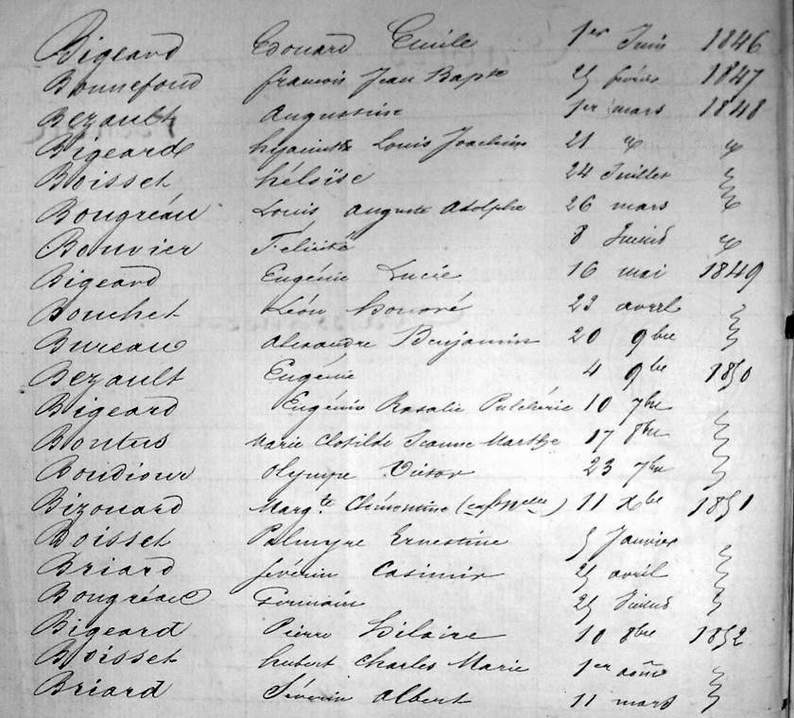 Bigeard Edouard Emile 1er Juin 1846
Bonnefond francois Jean Bapte 25 février 1847
Bezault Augustine 1er mars 1848
Bigeard hyacinthe Louis Joachim 21 " "
Boisset héloïse 24 Juillet "
Bougréau Louis Auguste Adolphe 26 mars "
Bouvier Félicité 8 "
Bigeard Eugénie Lucie 16 mai 1849
Bouchet Léon honoré 23 avril "
Bureau alexandre Benjamin 20 9bre "
Bezault Eugénie 4 9bre 1850
Bigeard Eugénie Rosalie Pulchérie 10 7bre "
Bontus Marie Clotilde Jeanne Marthe 17 8bre "
Boudiour Olympe Victor 23 7bre "
Bizouard Margte Clémentine (enft nelle) 11 Xbre 1851
Boisset Palmyre Ernestine 5 Janvier "
Briard Séverin Casimir 25 avril "
Bougréau Germain 25 "
Bigeard Pierre hilaire 10 8bre 1852
Boisset hubert Charles Marie 1er août "
Briard Séverin Albert 11 mars "